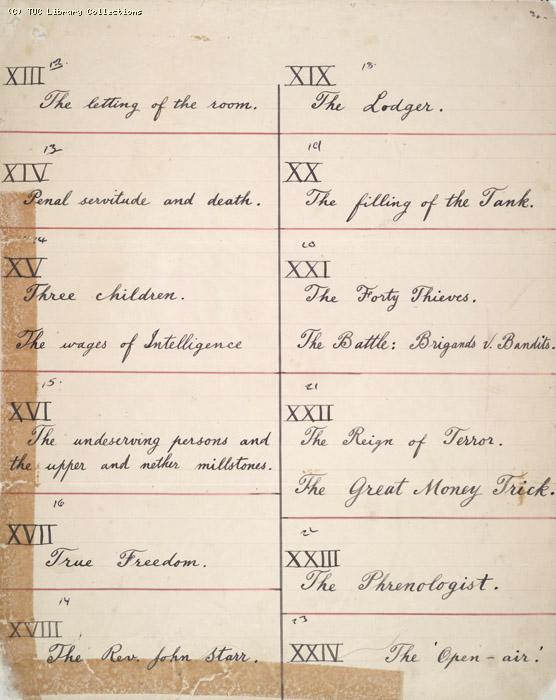 (C) TUC Library Collections
XIII 12
The letting of the room.
13
XIV
Penal servitude and death.
14
XV
Three children.
The wages of Intelligence
15.
XVI
The undeserving persons and
the upper and nether millstones.
16
XVII
True Freedom.
XVIII
The Rev. John Starr.
XIX 18.
The Lodger.
19
XX
The filling of the Tank.
20
XXI
The Forty Thieves.
The Battle: Brigands V. Bandits.
21
XXII
The Reign of Terror.
The Great Money Trick.
22
XXIII
The Phrenologist.
23
XXIV The 'Open-air.'